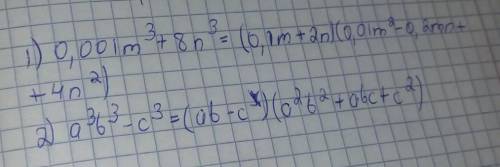 1) 0,001m³ + 8n³ = (0,1m + 2n)(0,01m² - 0,2mn +
+ 4n²)
2) a³b³ - c³ = (ab - c)(a²b² + abc + c²)